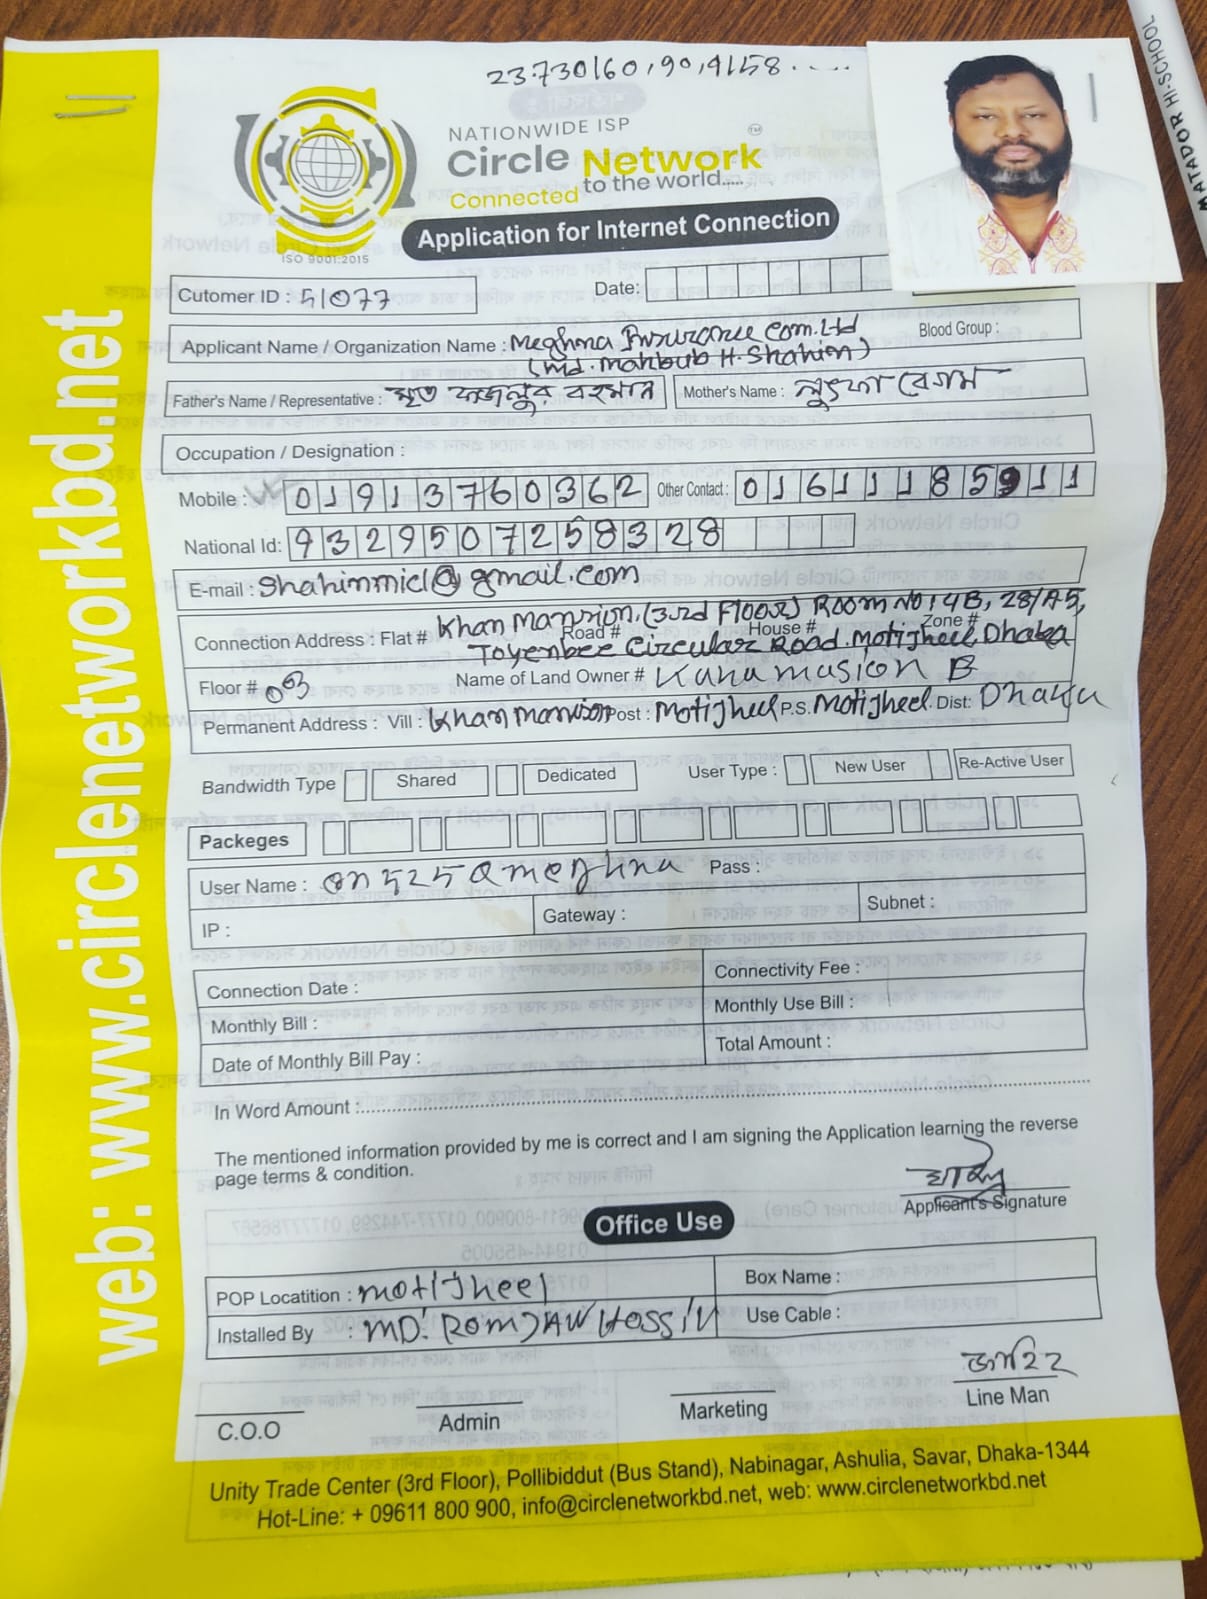 23.730160,90,4158.....
NATIONWIDE ISP
Circle Network
TM
Connected to the world.....
ISO 9001:2015
Application for Internet Connection
MATADOR HI-SCHOOL
Cutomer ID : 51077
Date:
Applicant Name / Organization Name : Meghna Insurance Com. Ltd
(Md. Mahbub H. Shahin)
Blood Group :
Father's Name / Representative : মৃত ফজলুর রহমান
Mother's Name : লুৎফা বেগম
Occupation / Designation :
Mobile : 01913760362 Other Contact : 01611185911
National Id: 9329507258328
E-mail : Shahinmicl@gmail.com
Khan Mansion, (3rd Floor) Room No: 4B, 28/A5,
Connection Address : Flat # Road # House # Zone #
Toyenbee Circular Road. Motijheel Dhaka
Floor # 03 Name of Land Owner # Kana masion B
Permanent Address : Vill : Khan Mansion Post : Motijheel P.S. Motijheel. Dist: Dhaka
Bandwidth Type Shared Dedicated User Type : New User Re-Active User
Packeges
User Name : cn525@meghna Pass :
IP : Gateway : Subnet :
Connection Date : Connectivity Fee :
Monthly Bill : Monthly Use Bill :
Date of Monthly Bill Pay : Total Amount :
In Word Amount :
The mentioned information provided by me is correct and I am signing the Application learning the reverse
page terms & condition.
Applicant's Signature
Office Use
POP Locatition : motijheel Box Name :
Installed By : MD. ROMJAN HOSSIN Use Cable :
C.O.O
Admin
Marketing
Line Man
Unity Trade Center (3rd Floor), Pollibiddut (Bus Stand), Nabinagar, Ashulia, Savar, Dhaka-1344
Hot-Line: + 09611 800 900, info@circlenetworkbd.net, web: www.circlenetworkbd.net
web: www.circlenetworkbd.net